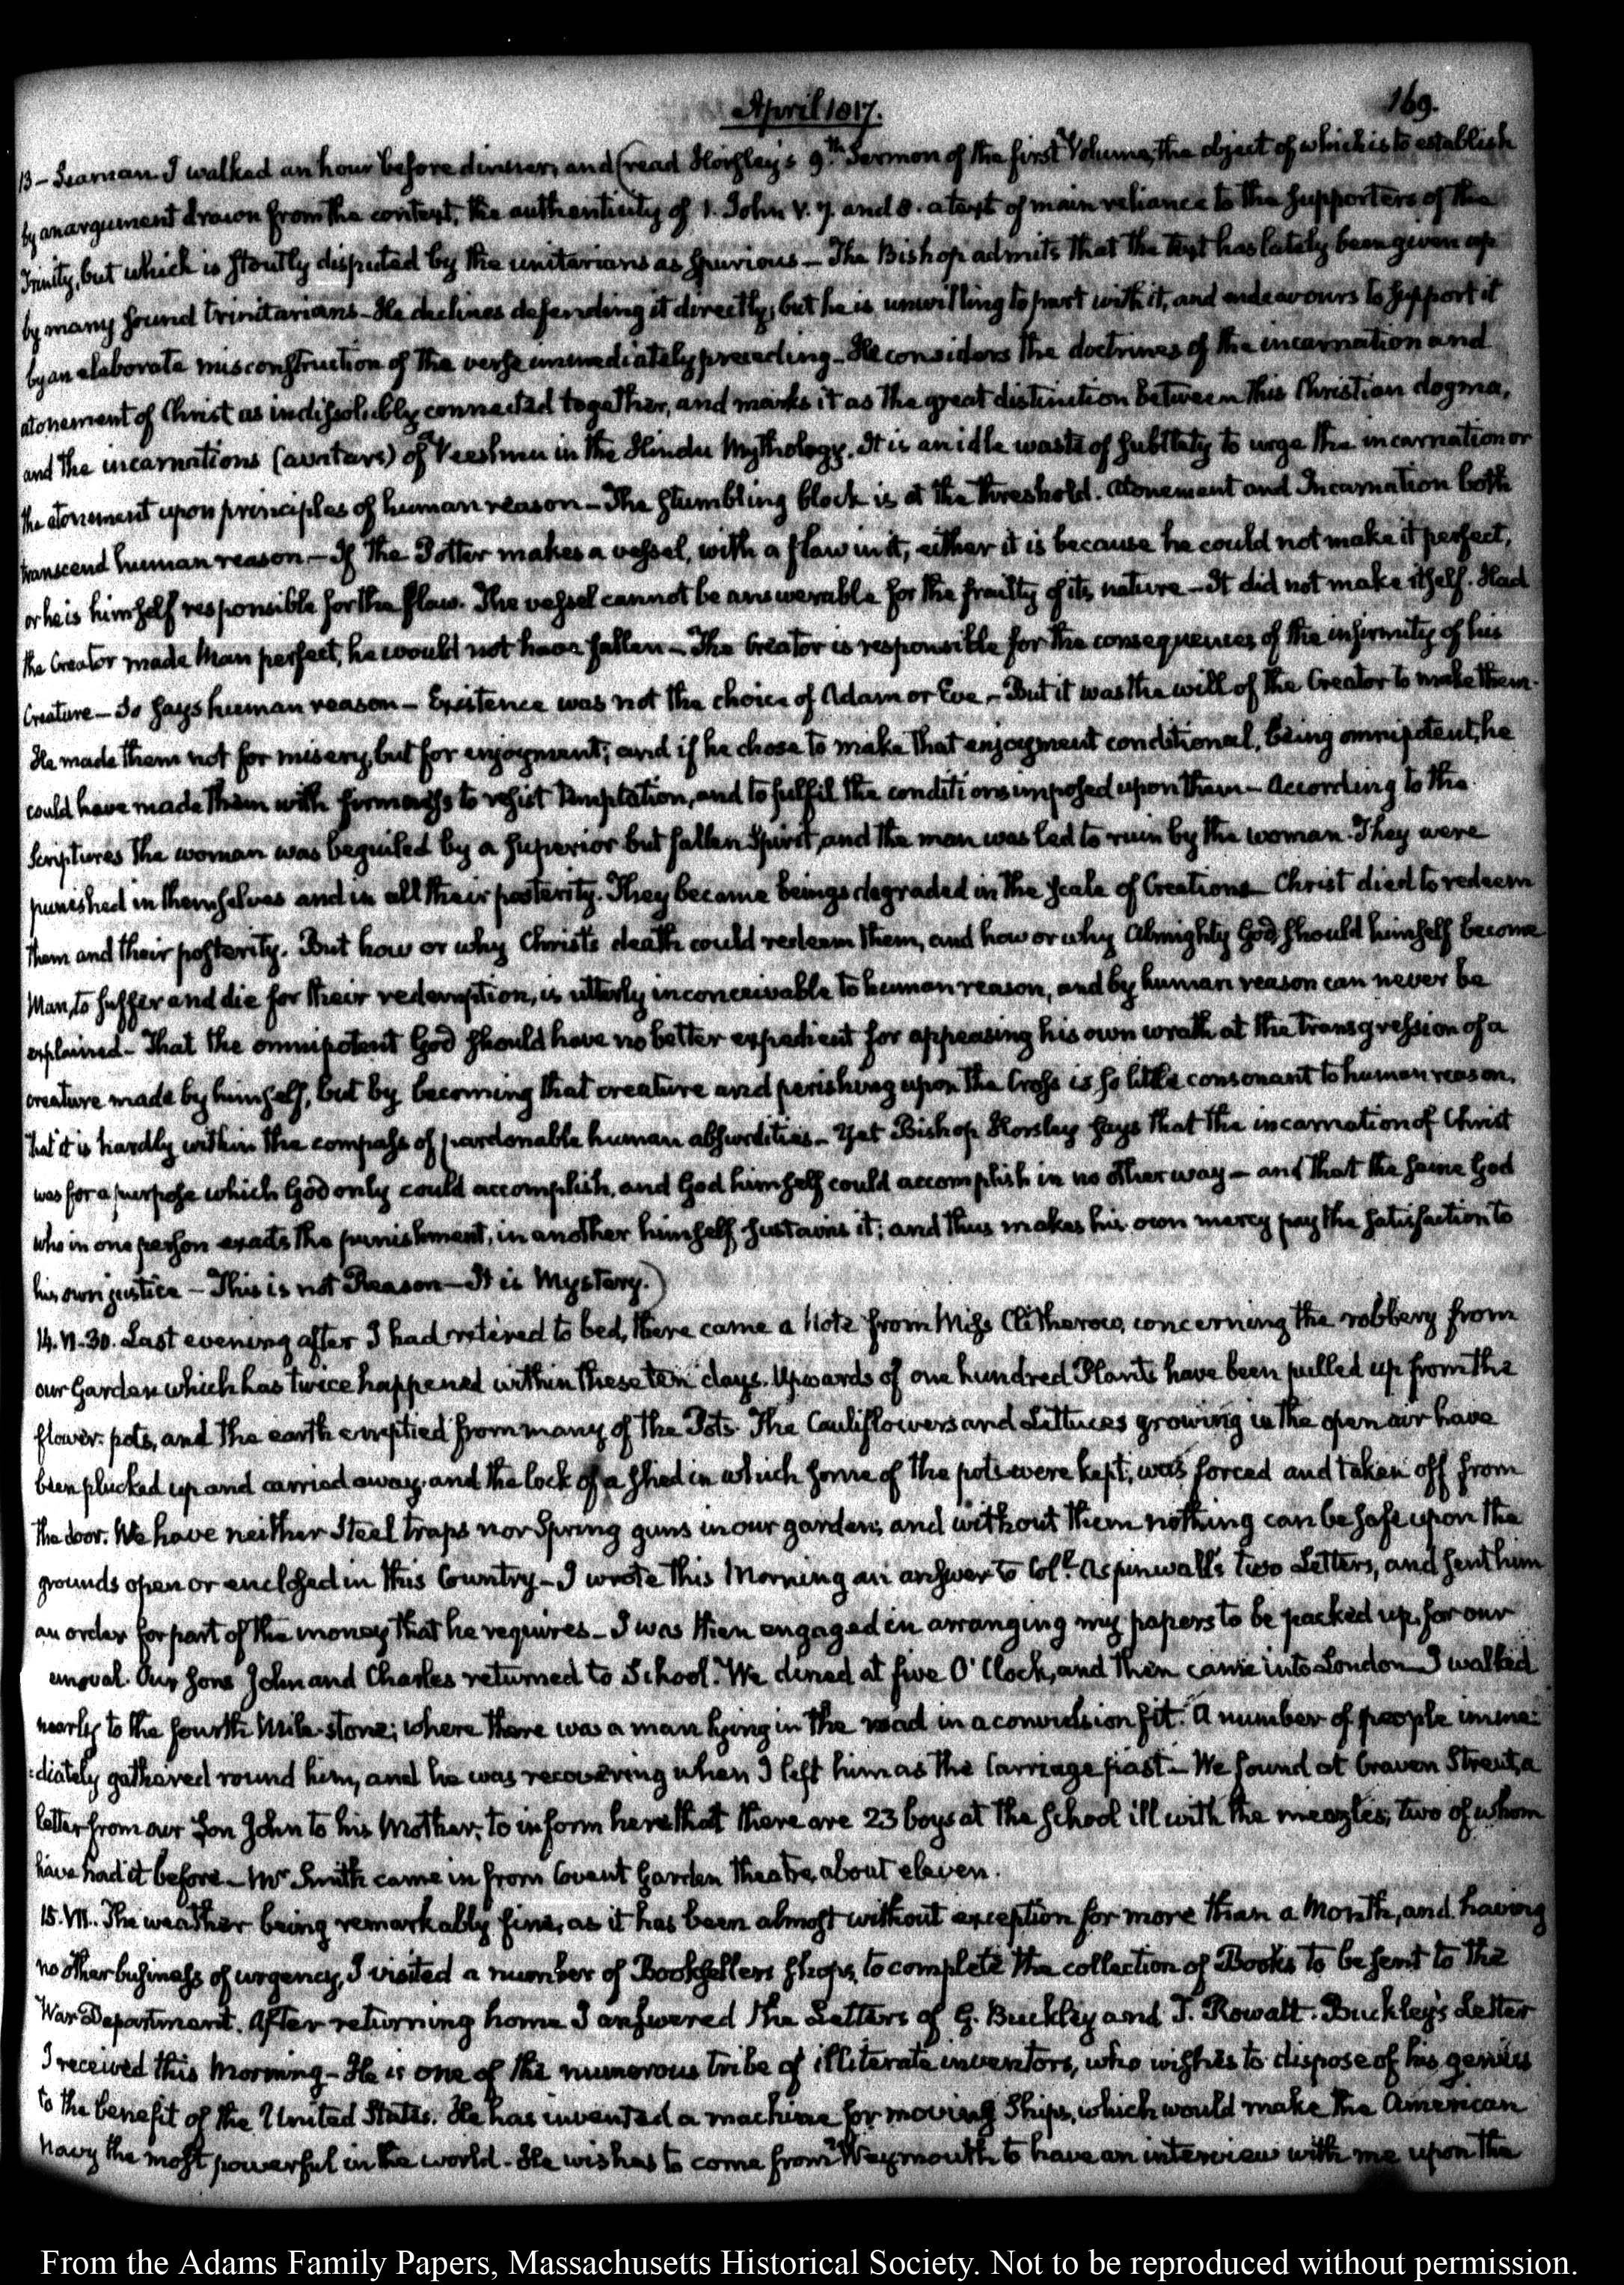 April 1817.
169.
13 – Seaman. I walked an hour before dinner, and (read Horsley's 9th Sermon of the first Volume, the object of which is to establish
by an argument drawn from the context, the authenticity of 1. John V. 7. and 8. a text of main reliance to the supporters of the
Trinity, but which is stoutly disputed by the unitarians as spurious – The Bishop admits that the text has lately been given up
by many sound trinitarians – He declines defending it directly, but he is unwilling to part with it, and endeavours to support it
by an elaborate misconstruction of the verse immediately preceding – He considers the doctrines of the incarnation and
atonement of Christ as indissolubly connected together, and marks it as the great distinction between this Christian dogma,
and the incarnations (avatars) of Veeshnu in the Hindu Mythology. It is an idle waste of subtlety to urge the incarnation or
the atonement upon principles of human reason – The stumbling block is at the threshold. Atonement and Incarnation both
transcend human reason – If the Potter makes a vessel, with a flaw in it, either it is because he could not make it perfect,
or he is himself responsible for the flaw. The vessel cannot be answerable for the frailty of its nature – It did not make itself. Had
the Creator made Man perfect, he would not have fallen – The Creator is responsible for the consequences of the infirmity of his
Creature – So says human reason – Existence was not the choice of Adam or Eve – But it was the will of the Creator to make them.
He made them not for misery, but for enjoyment; and if he chose to make that enjoyment conditional, being omnipotent, he
could have made them with firmness to resist temptation, and to fulfil the conditions imposed upon them – According to the
Scriptures the woman was beguiled by a superior but fallen Spirit, and the man was led to ruin by the woman. They were
punished in themselves and in all their posterity. They became beings degraded in the scale of Creation – Christ died to redeem
them and their posterity. But how or why Christ's death could redeem them, and how or why Almighty God should himself become
Man, to suffer and die for their redemption, is utterly inconceivable to human reason, and by human reason can never be
explained – That the omnipotent God should have no better expedient for appeasing his own wrath at the transgression of a
creature made by himself, but by becoming that creature and perishing upon the Cross is so little consonant to human reason,
that it is hardly within the compass of pardonable human absurdities – Yet Bishop Horsley says that the incarnation of Christ
was for a purpose which God only could accomplish, and God himself could accomplish in no other way – and that the same God
who in one person exacts the punishment, in another himself, sustains it; and thus makes his own mercy pay the satisfaction to
his own justice – This is not Reason – It is Mystery.)
14. VI. 30. Last evening after I had retired to bed, there came a Note from Miss Clitherow, concerning the robbery from
our Garden which has twice happened within these ten days. Upwards of one hundred Plants have been pulled up from the
flower-pots, and the earth emptied from many of the Pots. The Cauliflowers and Lettuces growing in the open air have
been plucked up and carried away, and the lock of a shed in which some of the pots were kept, was forced and taken off from
the door. We have neither Steel traps nor Spring guns in our garden; and without them nothing can be safe upon the
grounds open or enclosed in this Country – I wrote this Morning an answer to Coll. Aspinwall's two Letters, and sent him
an order for part of the money that he requires – I was then engaged in arranging my papers to be packed up, for our
emoval. Our Sons John and Charles returned to School. We dined at five O'Clock, and then came into London – I walked
nearly to the fourth Mile-stone; where there was a man lying in the road in a convulsion fit. A number of people imme:
:diately gathered round him, and he was recovering when I left him as the Carriage past – We found at Craven Street, a
letter from our Son John to his Mother, to inform her that there are 23 boys at the School ill with the meazles, two of whom
have had it before – Mr Smith came in from Covent Garden Theatre, about eleven.
15. VII. The weather being remarkably fine, as it has been almost without exception for more than a Month, and having
no other business of urgency, I visited a number of Booksellers shops, to complete the collection of Books to be sent to the
War Department. After returning home I answered the Letters of G. Buckley and J. Rowalt. Buckley's Letter
I received this Morning – He is one of the numerous tribe of illiterate inventors, who wishes to dispose of his genius
to the benefit of the United States. He has invented a machine for moving Ships, which would make the American
Navy the most powerful in the world – He wishes to come from Weymouth to have an interview with me upon the
From the Adams Family Papers, Massachusetts Historical Society. Not to be reproduced without permission.